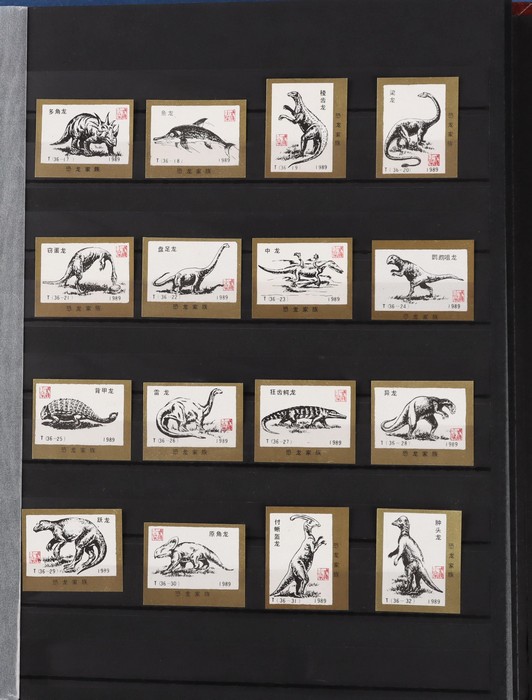 多角龙
T(36-17)
1989
恐龙家族
鱼龙
T(36-18)
1989
恐龙家族
棱齿龙
T(36-19)
1989
恐龙家族
梁龙
T(36-20)
1989
恐龙家族
窃蛋龙
T(36-21)
1989
恐龙家族
盘足龙
T(36-22)
1989
恐龙家族
中龙
T(36-23)
1989
恐龙家族
T(36-24)
1989
恐龙家族
背甲龙
T(36-25)
1989
恐龙家族
雷龙
T(36-26)
1989
恐龙家族
T(36-27)
1989
恐龙家族
异龙
T(36-28)
1989
恐龙家族
跃龙
T(36-29)
1989
恐龙家族
原角龙
T(36-30)
1989
恐龙家族
付栉龙
T(36-31)
1989
恐龙家族
肿头龙
T(36-32)
1989
恐龙家族